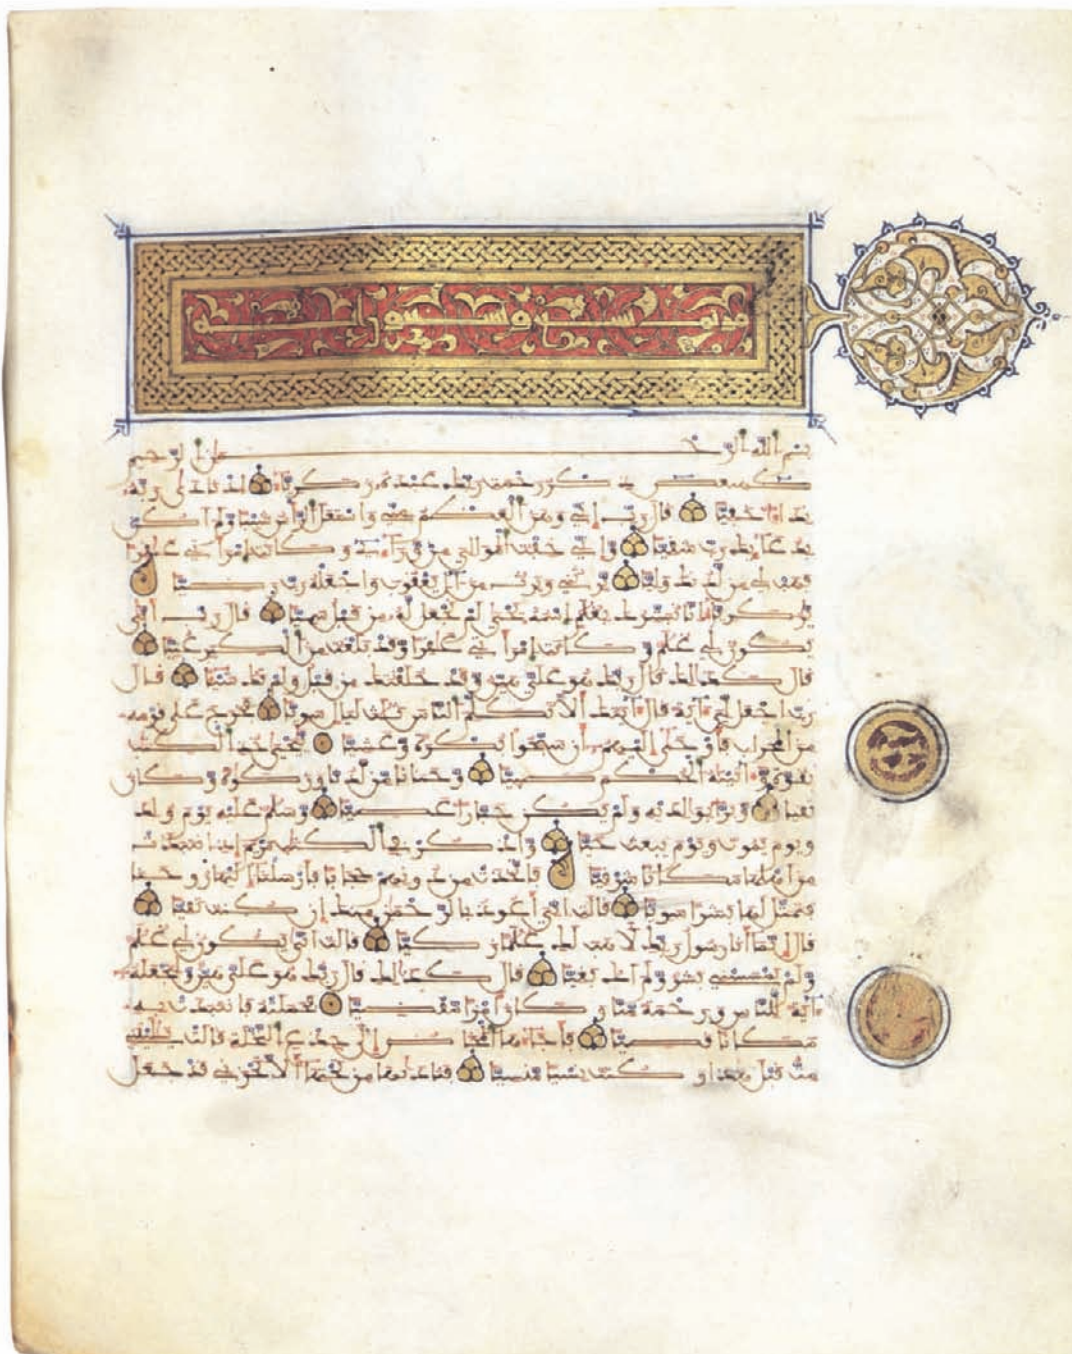 بسم الله الرحمن الرحيم
كهيعص ذكر رحمت ربك عبده زكرياء اذ نادى ربه
نداء خفيا قال رب إني وهن العظم مني واشتعل الرأس شيبا ولم اكن
بدعائك رب شقيا وإني خفت الموالي من وراءي وكانت امرأتي عاقرا
فهب لي من لدنك وليا يرثني ويرث من ال يعقوب واجعله رب رضيا
يزكرياء انا نبشرك بغلم اسمه يحيى لم نجعل له من قبل سميا قال رب أنى
يكون لي غلم وكانت امرأتي عاقرا وقد بلغت من الكبر عتيا
قال كذلك قال ربك هو علي هين وقد خلقتك من قبل ولم تك شيئا قال
رب اجعل لي ءاية قال ءايتك ألا تكلم الناس ثلث ليال سويا فخرج على قومه
من المحراب فأوحى إليهم أن سبحوا بكرة وعشيا ييحيى خذ الكتب
بقوة وءاتينه الحكم صبيا وحنانا من لدنا وزكوة وكان
تقيا وبرا بوالديه ولم يكن جبارا عصيا وسلم عليه يوم ولد
ويوم يموت ويوم يبعث حيا واذكر في الكتب مريم إذ انتبذت
من أهلها مكانا شرقيا فاتخذت من دونهم حجابا فأرسلنا إليها روحنا
فتمثل لها بشرا سويا قالت اني أعوذ بالرحمن منك إن كنت تقيا
قال إنما أنا رسول ربك لأهب لك غلما زكيا قالت انى يكون لي غلم
ولم يمسسني بشر ولم اك بغيا قال كذلك قال ربك هو علي هين ولنجعله
ءاية للناس ورحمة منا وكان أمرا مقضيا فحملته فانتبذت به
مكانا قصيا فأجاءها المخاض إلى جذع النخلة قالت يليتني
مت قبل هذا وكنت نسيا منسيا فنادىها من تحتها ألا تحزني قد جعل